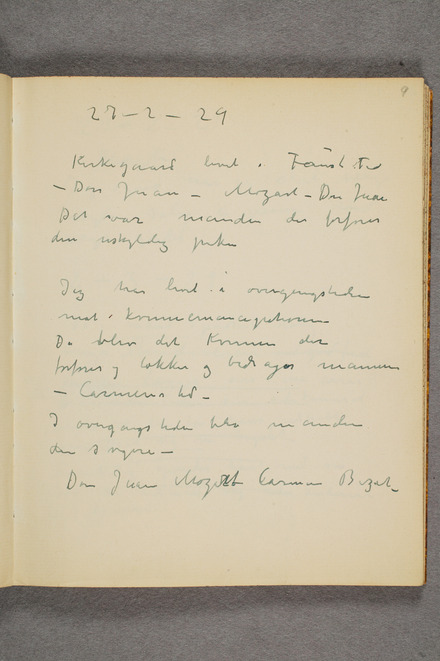 9
27-2-29
Kirkegaard levet i Faust Tid
– Don Juan – Mozart – Don Juan
Det var manden der forfører
den uskyldig pike
Jeg har levet i overgangstiden
midt i kvinneemancipationen
Da blev det kvinnen der
forfører og lokker og bedrager mannen
– Carmens tid –
I overgangstiden blev manden
den svagere –
Don Juan Mozart Carmen Bizet –